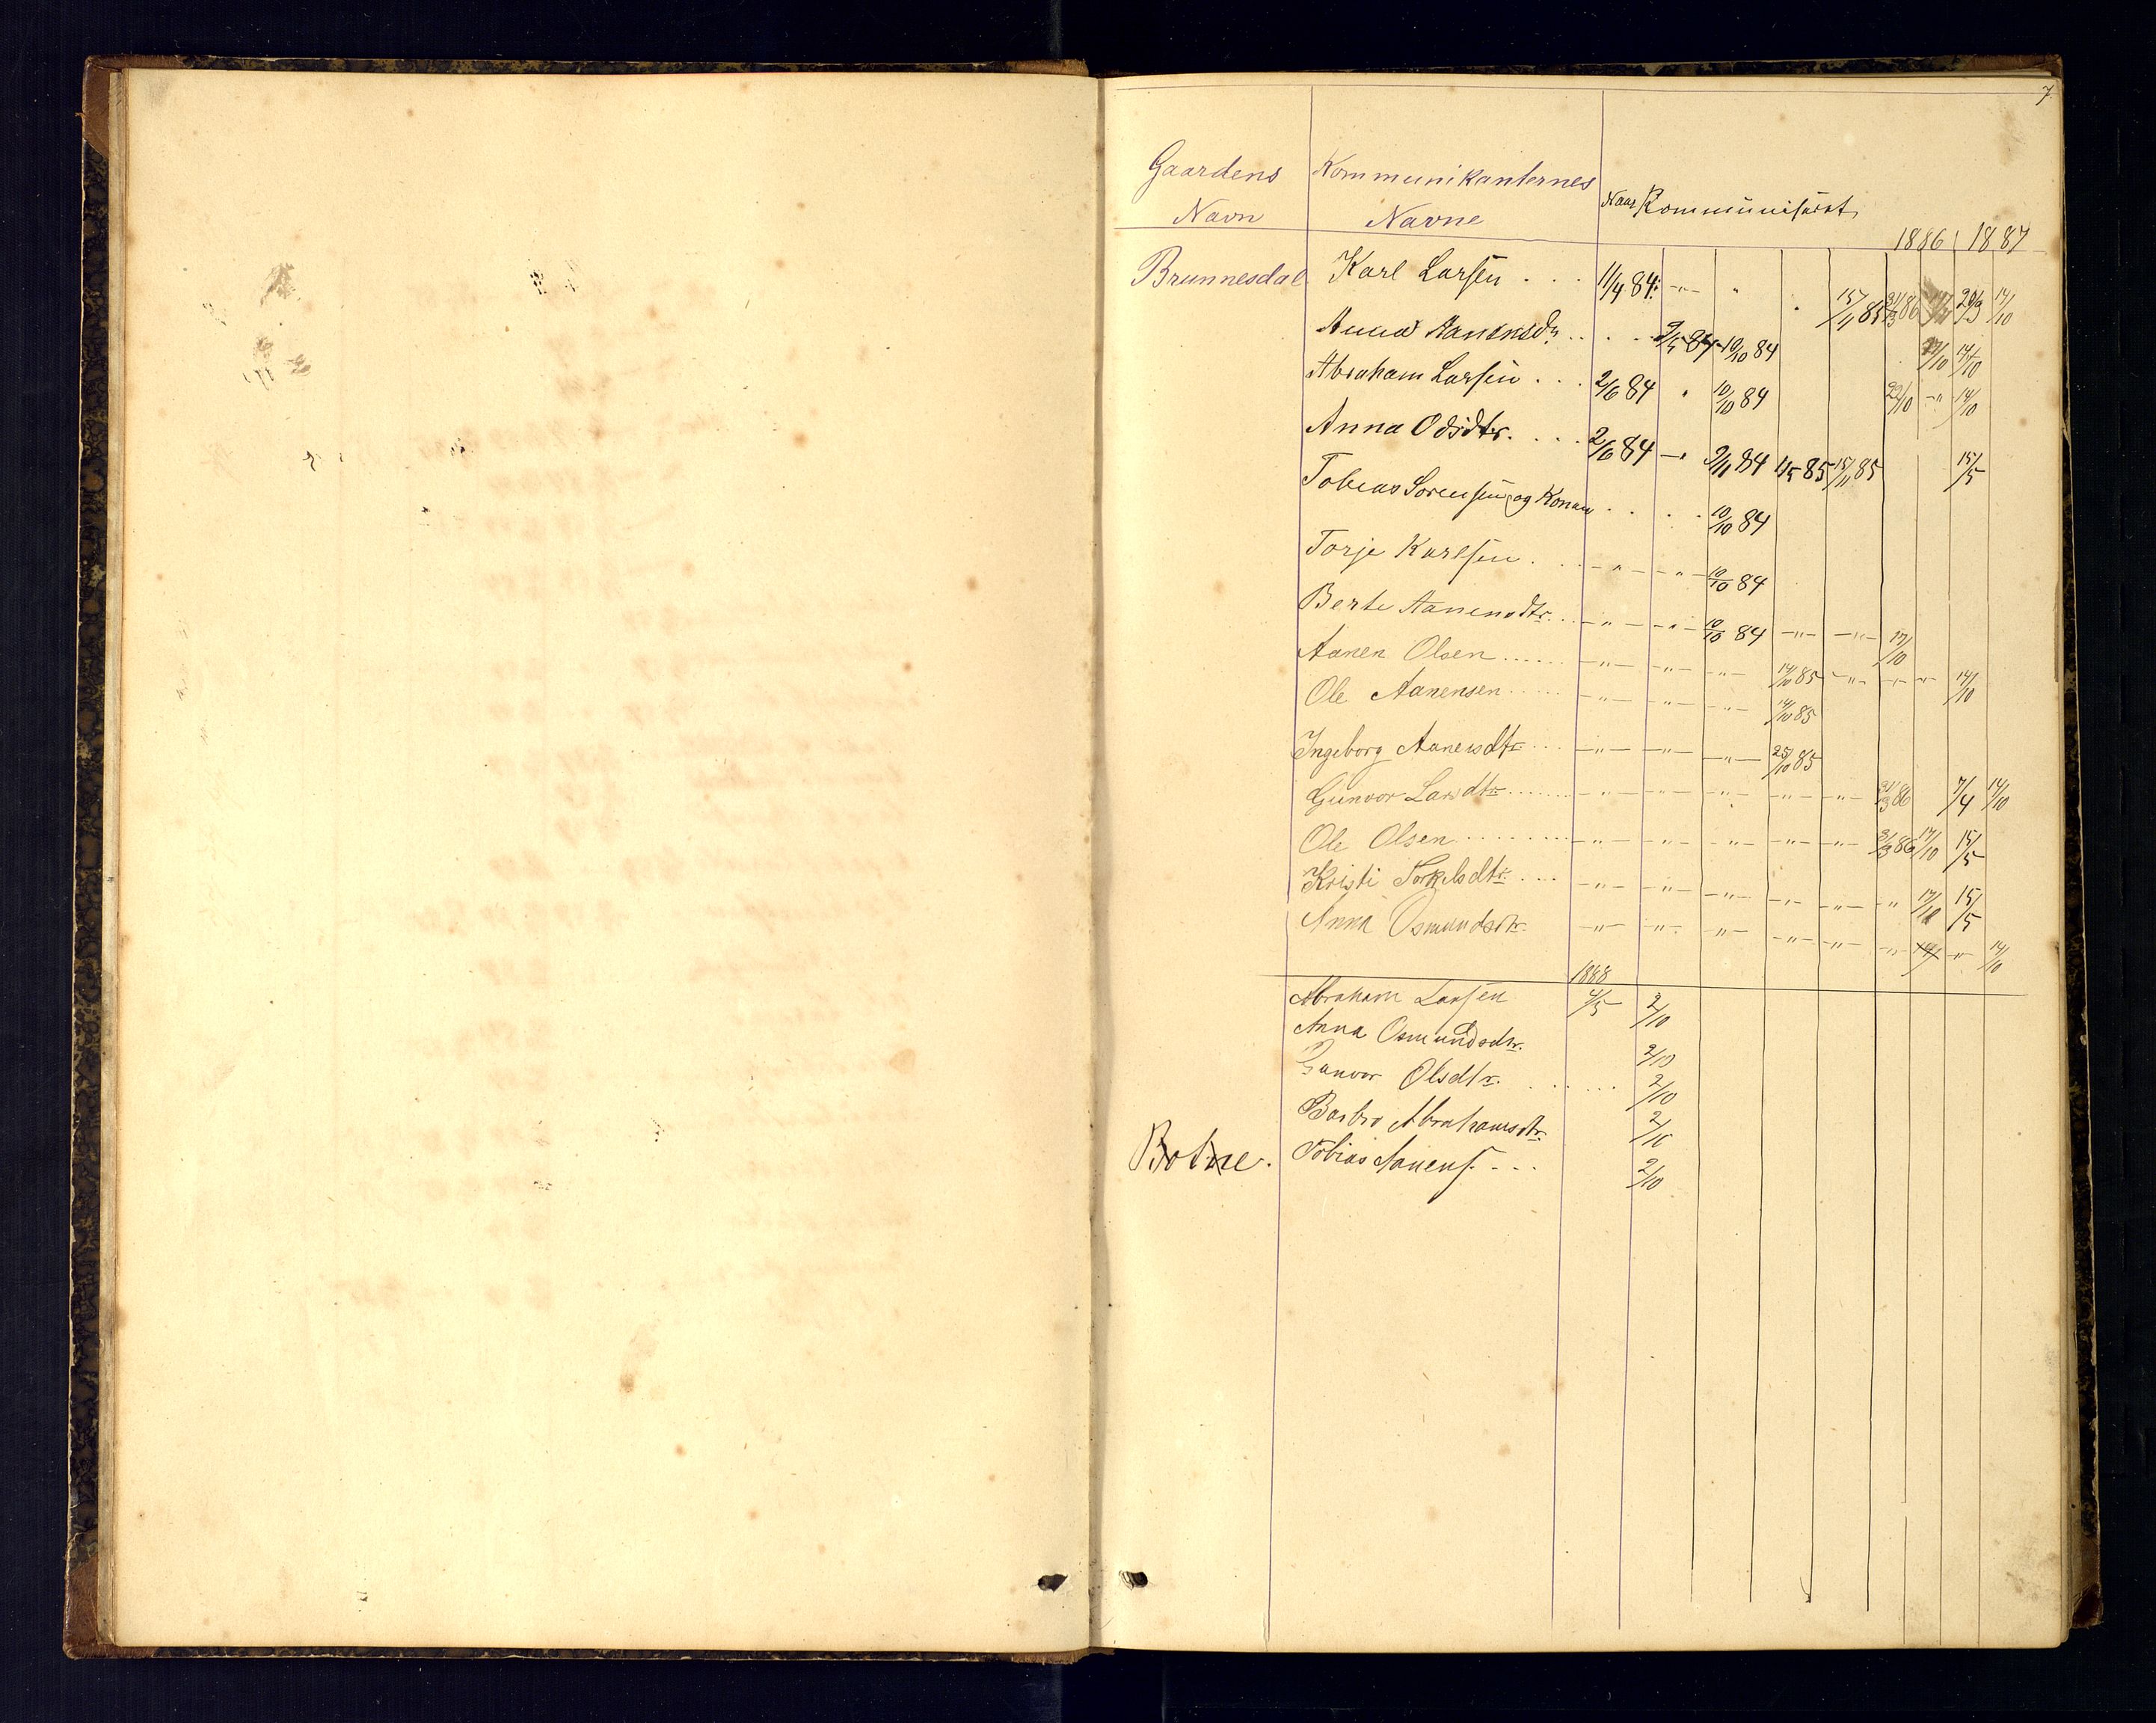 7.
Gaardens Kommunikanternes
Navn Navne Naar Kommuniseret
1886 1887
Brunnesdal Karl Larsen . . . 11/4 84. -"- " 15/11 85 21/3 86 20/3 14/10
Anna Aanensdr. . . . 84 10/10 84 17/10 14/10
Abraham Larsen . . . 2/6 84 " 10/10 84 22/10 -"- 14/10
Anna Odsdtr. . . . 2/6 84 -" 2/11 84 85 15/11 85 15/5
Tobias Sorensen og Konen . . . . 10/10 84
Torje Karlsen . . -"- -"- 10/10 84
Berte Aanensdtr. . . -"- -"- 10/10 84 -"- -"- 17/10
Aanen Olsen ...... -"- -"- -"- 14/10 85 -"- -"- -"- 14/10
Ole Aanensen ..... -"- -"- -"- 14/10 85
Ingeborg Aanensdtr. ... -"- -"- -"- 25/10 85
Gunvor Larsdtr. ...... -"- -"- -"- -"- -"- 21/3 86 7/4 14/10
Ole Olsen .......... -"- -"- -"- -"- -"- 86 17/10 15/5
Kristi Torkelsdtr. .... -"- -"- -"- -"- -"- -"- 17/10 15/5
Anna Osmundsdtr. -"- -"- -"- -"- -"- -"- -"- 14/10
1888
Abraham Larsen 4/5 2/10
Anna Osmundsdtr. 2/10
Gunvor Olsdtr. . . . . . 2/10
Barbro Abrahamsdtr. 2/10
Botne. Tobias Aanens. - - - 2/10